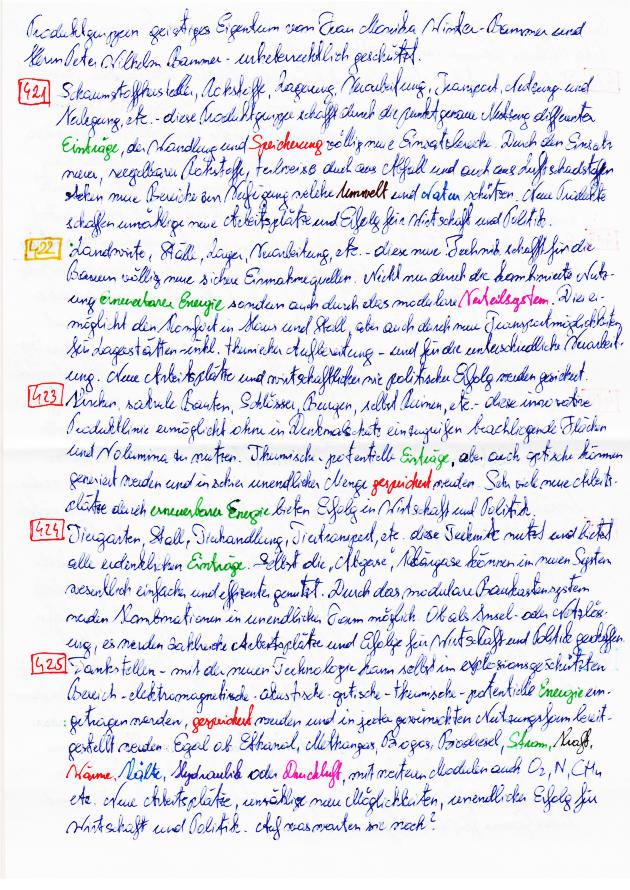 Produktgruppen geistiges Eigentum von Frau Monika Winter-Bammer und
Herrn Peter Wilhelm Bammer - urheberrechtlich geschützt.
421 Schaumstoffhersteller, Rohstoffe, Lagerung, Verarbeitung, Transport, Nutzung und
Verlegung, etc. - diese Produktgruppe schafft durch die punktgenaue Nutzung differenter
Einträge, der Wandlung und Speicherung völlig neue Einsatzbereiche. Durch den Einsatz
neuer, regelbarer Rohstoffe, teilweise auch aus Abfall und auch aus Luftschadstoffen
stehen neue Bereiche zur Verfügung welche Umwelt und Natur schützen. Neue Produkte
schaffen unzählige neue Arbeitsplätze und Erfolg für Wirtschaft und Politik.
422 Landwirte, Ställe, Lager, Verarbeitung, etc. - diese neue Technik schafft für die
Bauern völlig neue sichere Einnahmequellen. Nicht nur durch die kombinierte Nutz-
ung erneuerbarer Energie sondern auch durch das modulare Verteilsystem. Dies er-
möglicht den Komfort in Haus und Stall, aber auch durch neue Transportmöglichkeiten
für Lagerstätten - inkl. thermischer Aufbereitung - und für die unterschiedliche Verarbeit-
ung. Neue Arbeitsplätze und wirtschaftlicher wie politischer Erfolg werden gesichert.
423 Kirchen, sakrale Bauten, Schlösser, Burgen, selbst Ruinen, etc. - diese innovative
Produktlinie ermöglicht ohne in Denkmalschutz einzugreifen brachliegende Flächen
und Volumina zu nutzen. Thermische - potentielle Einträge, aber auch optische können
generiert werden und in schier unendlicher Menge gespeichert werden. Sehr viele neue Arbeits-
plätze durch erneuerbare Energie bieten Erfolg in Wirtschaft und Politik.
424 Tiergarten, Stall, Tierhandlung, Tiertransport, etc. diese Technik nutzt und bietet
alle erdenklichen Einträge. Selbst die "Abgase", Klärgase können im neuen System
wesentlich einfacher und effizienter genutzt. Durch das modulare Baukastensystem
werden Kombinationen in unendlicher Form möglich. Ob als Insel- oder Netzlös-
ung, es werden zahlreiche Arbeitsplätze und Erfolge für Wirtschaft und Politik geschaffen.
425 Tankstellen - mit der neuen Technologie kann selbst im explosionsgeschützten
Bereich - elektromagnetische - akustische - optische - thermische - potentielle Energie ein-
getragen werden, gespeichert werden und in jeder gewünschten Nutzungsform bereit-
gestellt werden. Egal ob Ethanol, Methangas, Biogas, Biodiesel, Strom, Kraft,
Wärme, Kälte, Hydraulik oder Druckluft, mit weiteren Modulen auch O2, N, CH4
etc. Neue Arbeitsplätze, unzählige neue Möglichkeiten, unendlicher Erfolg für
Wirtschaft und Politik. Auf was warten wir noch?